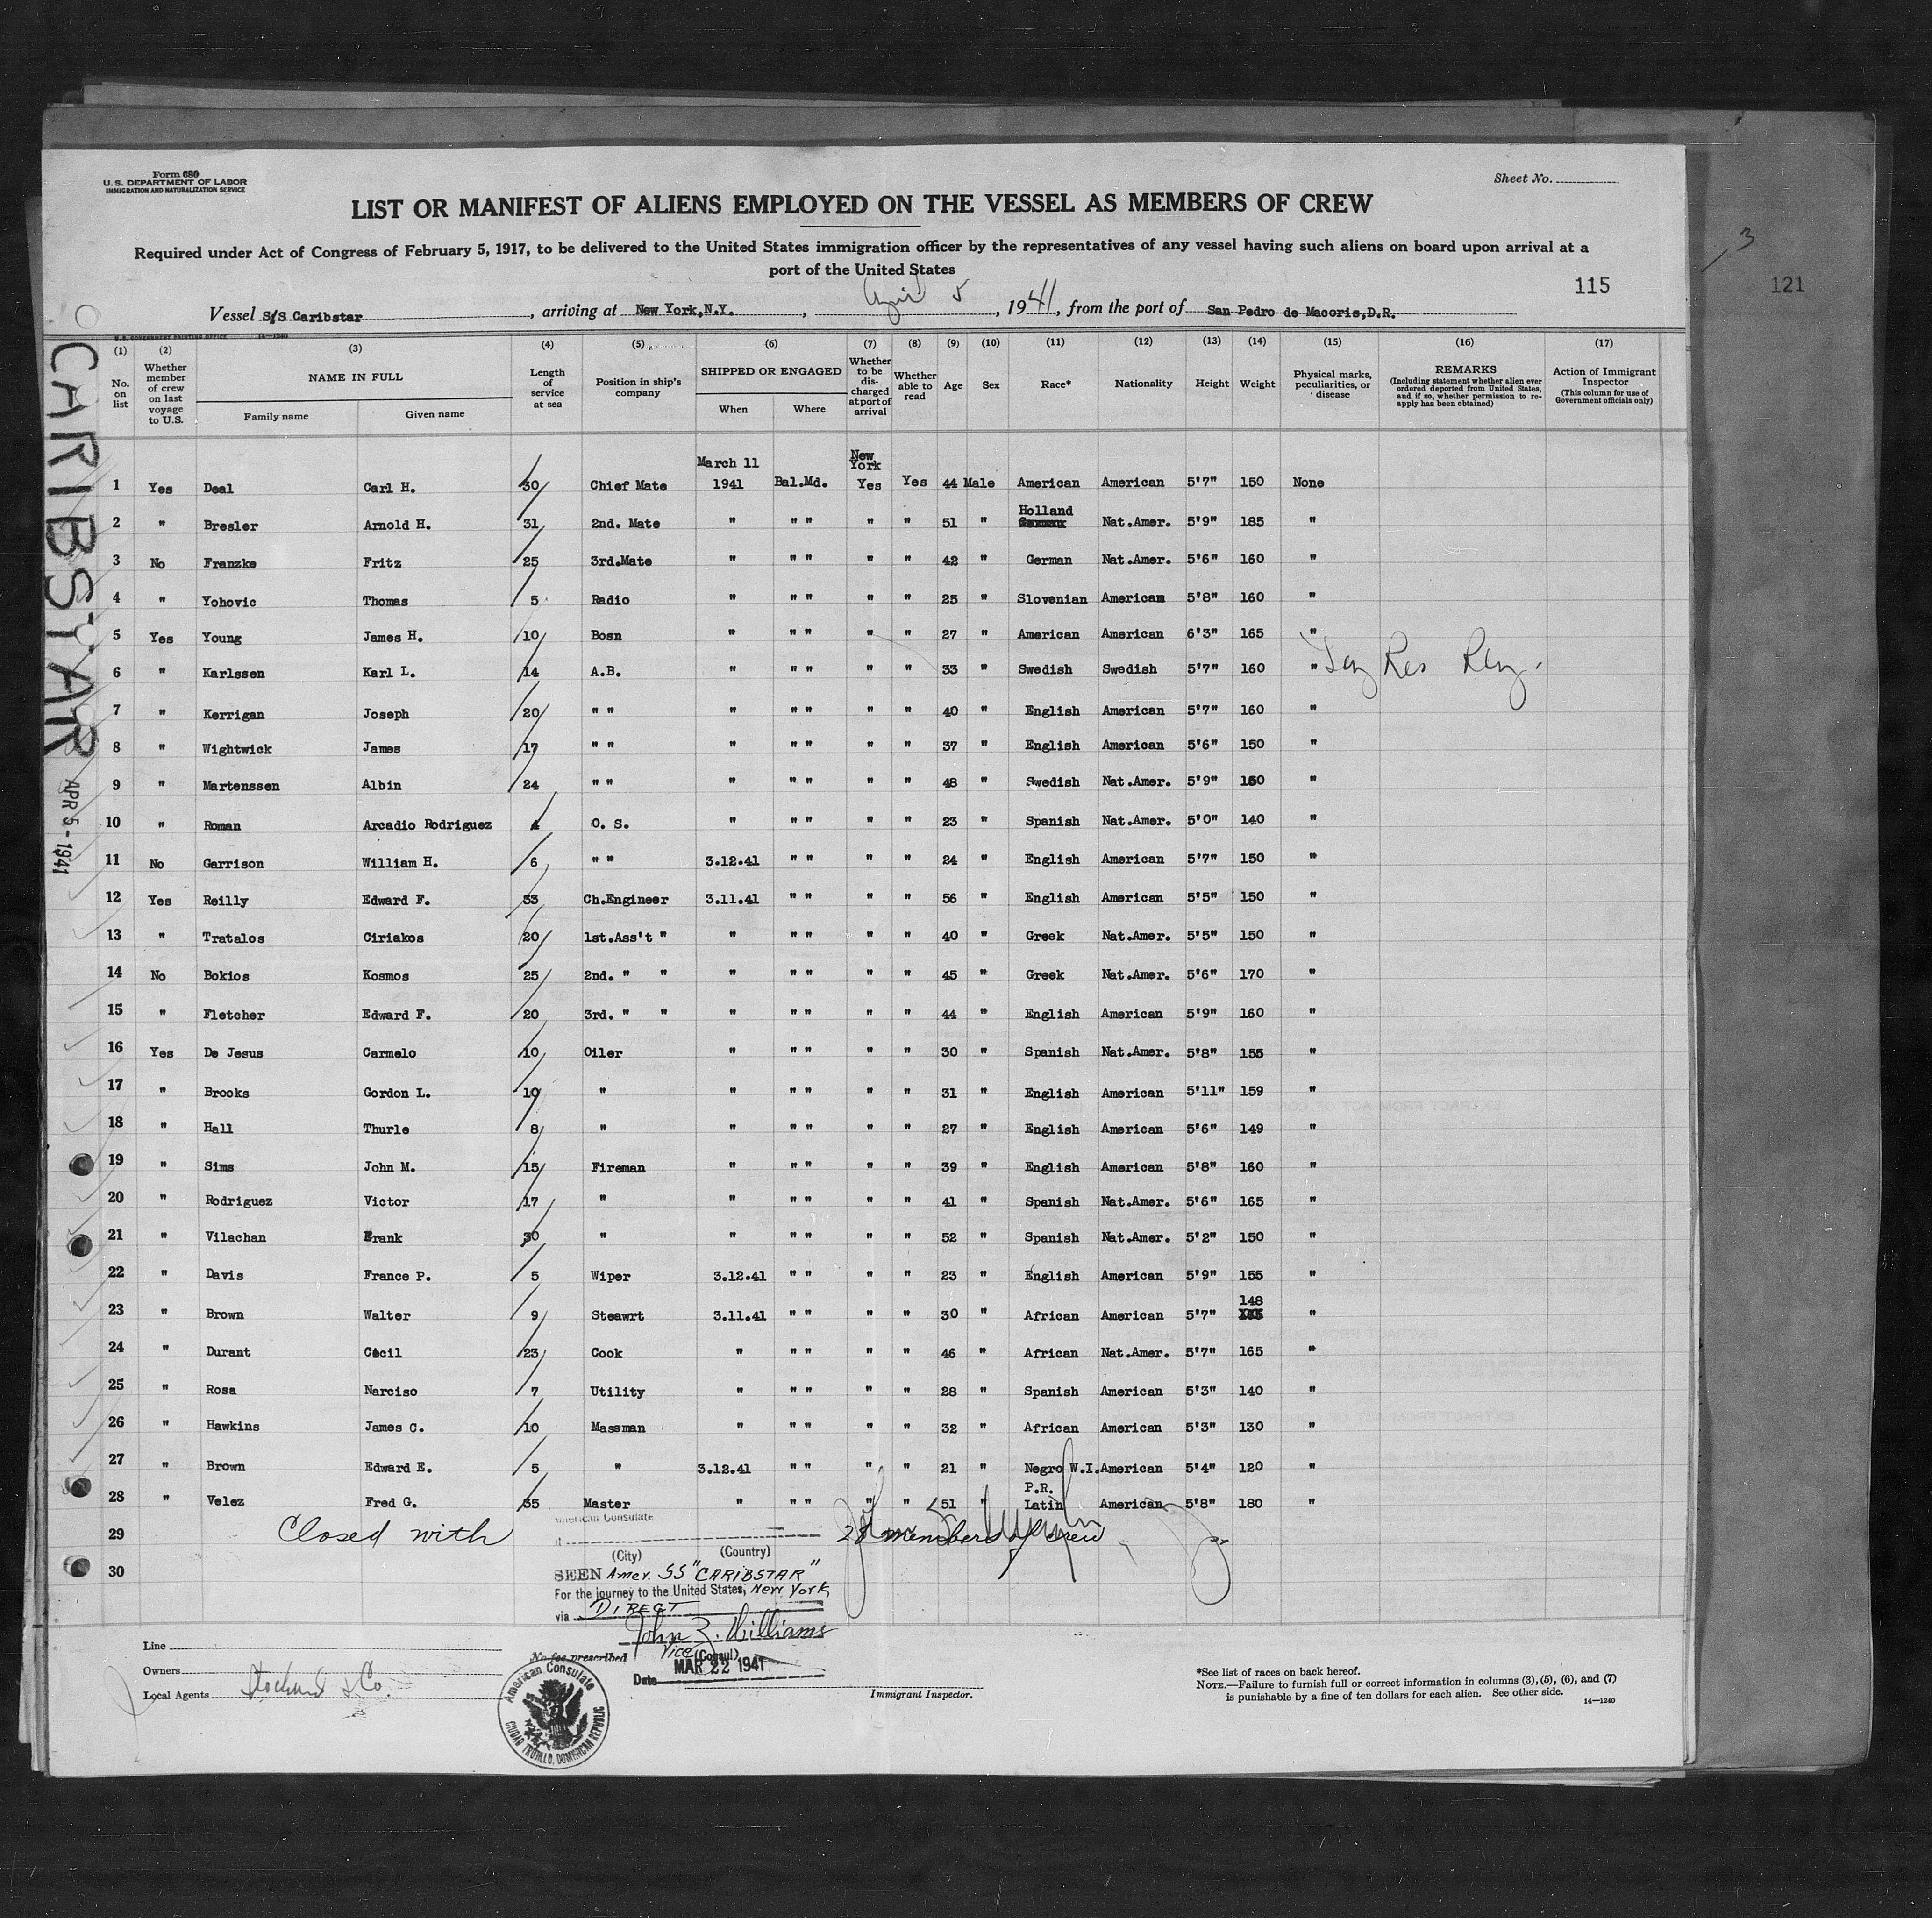 Form 680
U.S. DEPARTMENT OF LABOR
IMMIGRATION AND NATURALIZATION SERVICE
Sheet No.
LIST OR MANIFEST OF ALIENS EMPLOYED ON THE VESSEL AS MEMBERS OF CREW
Required under Act of Congress of February 5, 1917, to be delivered to the United States immigration officer by the representatives of any vessel having such aliens on board upon arrival at a
port of the United States
3
115
121
Vessel S/S Caribstar, arriving at New York,N.Y., April 5, 1941, from the port of San Pedro de Macoris,D.R.
U.S. GOVERNMENT PRINTING OFFICE 14—1240
(1) (2) (3) (4) (5) (6) (7) (8) (9) (10) (11) (12) (13) (14) (15) (16) (17)
No. on list
Whether member of crew on last voyage to U.S.
NAME IN FULL
Family name Given name
Length of service at sea
Position in ship's company
SHIPPED OR ENGAGED
When Where
Whether to be discharged at port of arrival
Whether able to read
Age Sex Race* Nationality Height Weight
Physical marks, peculiarities, or disease
REMARKS
(Including statement whether alien ever ordered deported from United States, and if so, whether permission to reapply has been obtained)
Action of Immigrant Inspector
(This column for use of Government officials only)
CARIBSTAR
APR 5 - 1941
March 11 New York
1 Yes Deal Carl H. 30 Chief Mate 1941 Bal.Md. Yes Yes 44 Male American American 5'7" 150 None
Holland
2 " Bresler Arnold H. 31 2nd. Mate " " " " " 51 " Nat.Amer. 5'9" 185 "
3 No Franzke Fritz 25 3rd.Mate " " " " " 42 " German Nat.Amer. 5'6" 160 "
4 " Yohovic Thomas 5 Radio " " " " " 25 " Slovenian American 5'8" 160 "
5 Yes Young James H. 10 Bosn " " " " " 27 " American American 6'3" 165 "
6 " Karlssen Karl L. 14 A.B. " " " " " 33 " Swedish Swedish 5'7" 160 " Res
7 " Kerrigan Joseph 20 " " " " " " " 40 " English American 5'7" 160 "
8 " Wightwick James 17 " " " " " " " 37 " English American 5'6" 150 "
9 " Martenssen Albin 24 " " " " " " " 48 " Swedish Nat.Amer. 5'9" 160 "
10 " Roman Arcadio Rodriguez 4 O. S. " " " " " 23 " Spanish Nat.Amer. 5'0" 140 "
11 No Garrison William H. 6 " " 3.12.41 " " " " 24 " English American 5'7" 150 "
12 Yes Reilly Edward F. 33 Ch.Engineer 3.11.41 " " " " 56 " English American 5'5" 150 "
13 " Tratalos Ciriakos 20 1st.Ass't " " " " " " 40 " Greek Nat.Amer. 5'5" 150 "
14 No Bokios Kosmos 25 2nd. " " " " " " " 45 " Greek Nat.Amer. 5'6" 170 "
15 " Fletcher Edward F. 20 3rd. " " " " " " " 44 " English American 5'9" 160 "
16 Yes De Jesus Carmelo 10 Oiler " " " " " 30 " Spanish Nat.Amer. 5'8" 155 "
17 " Brooks Gordon L. 10 " " " " " " 31 " English American 5'11" 159 "
18 " Hall Thurle 8 " " " " " " 27 " English American 5'6" 149 "
19 " Sims John M. 15 Fireman " " " " " 39 " English American 5'8" 160 "
20 " Rodriguez Victor 17 " " " " " " 41 " Spanish Nat.Amer. 5'6" 165 "
21 " Vilachan Frank 30 " " " " " " 52 " Spanish Nat.Amer. 5'2" 150 "
22 " Davis France P. 5 Wiper 3.12.41 " " " " 23 " English American 5'9" 155 "
148
23 " Brown Walter 9 Steawrt 3.11.41 " " " " 30 " African American 5'7" "
24 " Durant Cecil 23 Cook " " " " " 46 " African Nat.Amer. 5'7" 165 "
25 " Rosa Narciso 7 Utility " " " " " 28 " Spanish American 5'3" 140 "
26 " Hawkins James C. 10 Massman " " " " " 32 " African American 5'3" 130 "
27 " Brown Edward E. 5 " 3.12.41 " " " " 21 " Negro W.I. American 5'4" 120 "
P.R.
28 " Velez Fred G. 35 Master " " " " " 51 " Latin American 5'8" 180 "
29 Closed with 28 members of crew
30
American Consulate
(City) (Country)
SEEN Amer. SS "CARIBSTAR"
For the journey to the United States, New York
via DIRECT
John Z. Williams
Vice (Consul)
No fee prescribed
Date MAR 22 1941
American Consulate
CIUDAD TRUJILLO, DOMINICAN REPUBLIC
Line
Owners
Local Agents & Co.
Immigrant Inspector.
*See list of races on back hereof.
NOTE.—Failure to furnish full or correct information in columns (3), (5), (6), and (7)
is punishable by a fine of ten dollars for each alien. See other side.
14—1240